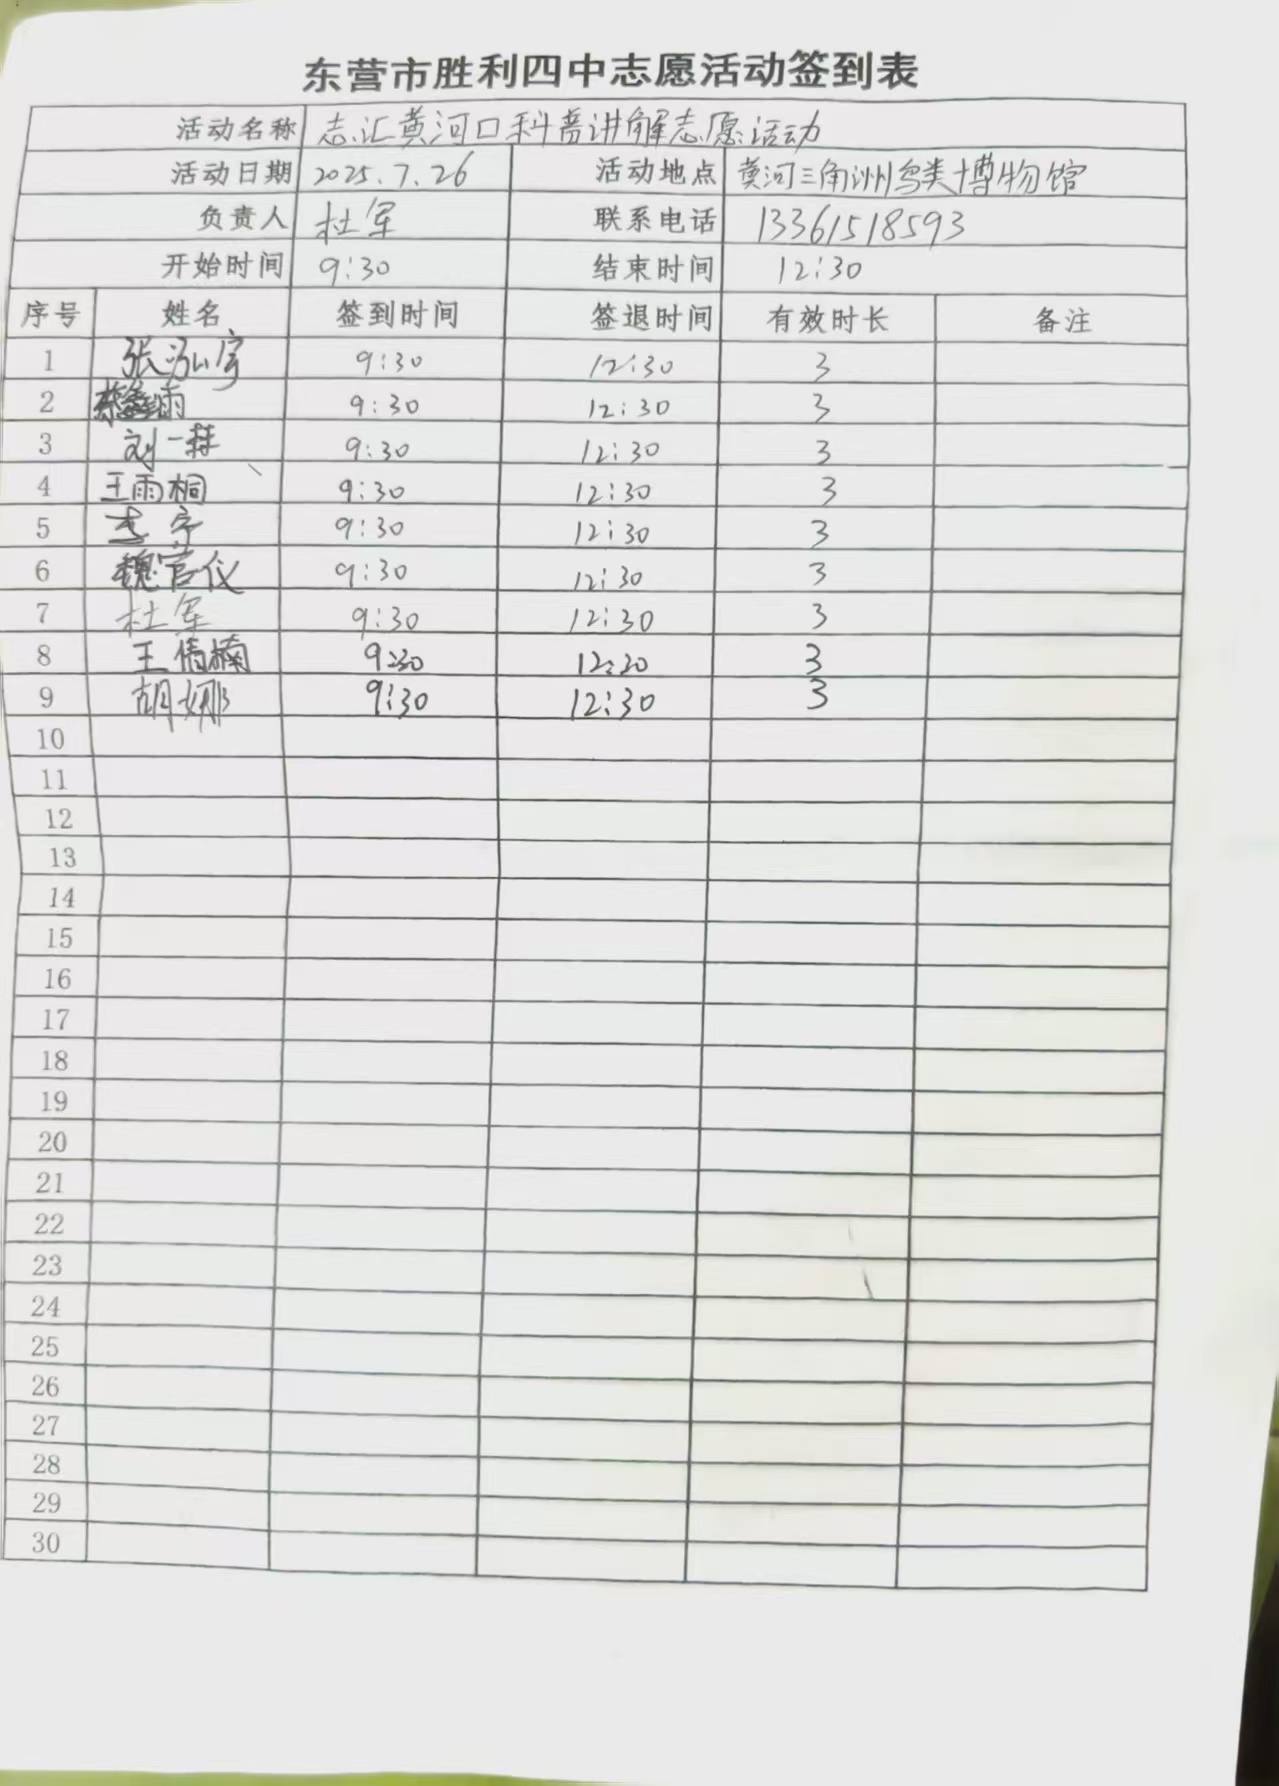 东营市胜利四中志愿活动签到表
活动名称 志汇黄河口科普讲解志愿活动
活动日期 2025.7.26 活动地点 黄河三角洲鸟类博物馆
负责人 杜军 联系电话 13361518593
开始时间 9:30 结束时间 12:30
序号 姓名 签到时间 签退时间 有效时长 备注
1 张泓宇 9:30 12:30 3
2 9:30 12:30 3
3 刘一 9:30 12:30 3
4 王雨桐 9:30 12:30 3
5 宁 9:30 12:30 3
6 魏官仪 9:30 12:30 3
7 杜军 9:30 12:30 3
8 王倩楠 9:30 12:30 3
9 胡娜 9:30 12:30 3
10
11
12
13
14
15
16
17
18
19
20
21
22
23
24
25
26
27
28
29
30